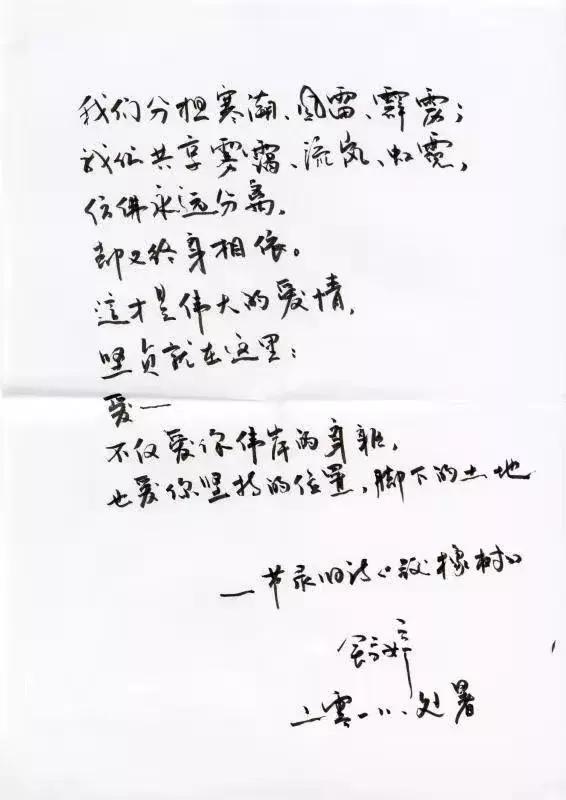 我们分担寒潮、风雷、霹雳；
我们共享雾霭、流岚、虹霓，
仿佛永远分离，
却又终身相依。
這才是伟大的爱情，
坚贞就在这里：
爱—
不仅爱你伟岸的身躯，
也爱你坚持的位置，脚下的土地
—节录旧诗《致橡树》
舒婷
二零一八、处暑